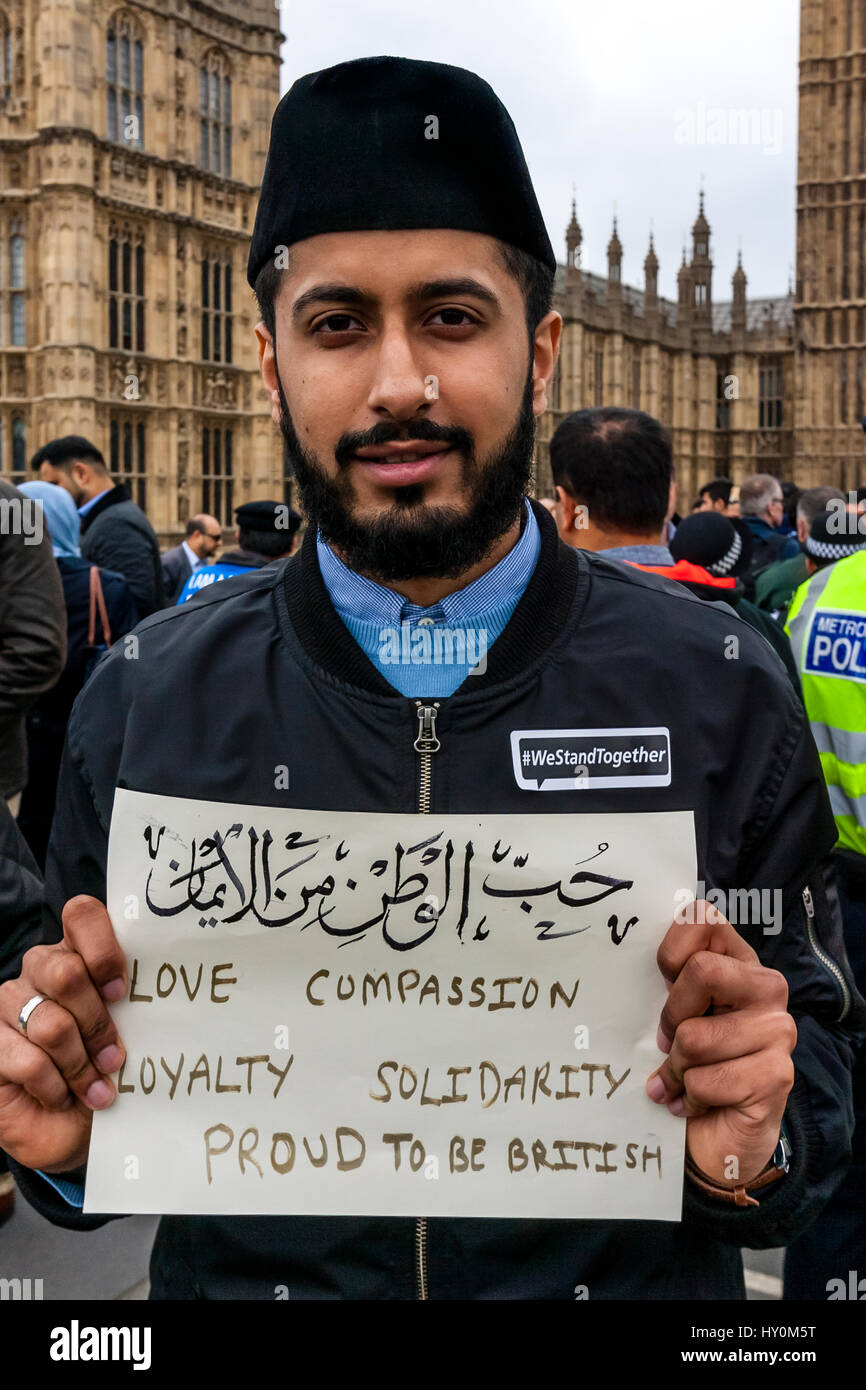 I AM A
METRO
POL
#WeStandTogether
حُبُّ الْوَطَنِ مِنَ الْإِيْمَانِ
LOVE COMPASSION
LOYALTY SOLIDARITY
PROUD TO BE BRITISH
alamy
Image ID: HY0M5T
www.alamy.com